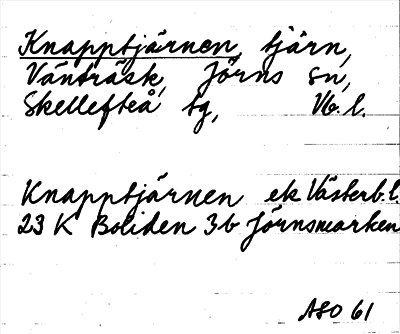 Knapptjärnen, tjärn,
Vänträsk, Jörns sn,
Skellefteå tg, Vb. l.
Knapptjärnen ek Västerb. l.
23 K Boliden 3b Jörnsmarken
ASO 61